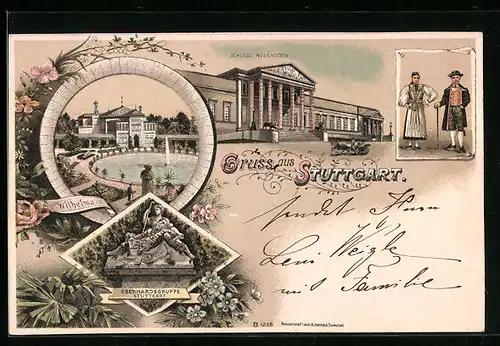 SCHLOSS ROSENSTEIN
Gruss aus
STUTTGART.
Wilhelma
EBERHARDSGRUPPE
STUTTGART
sendet Herrn
Leni Weigle
mit Familie
B 1258